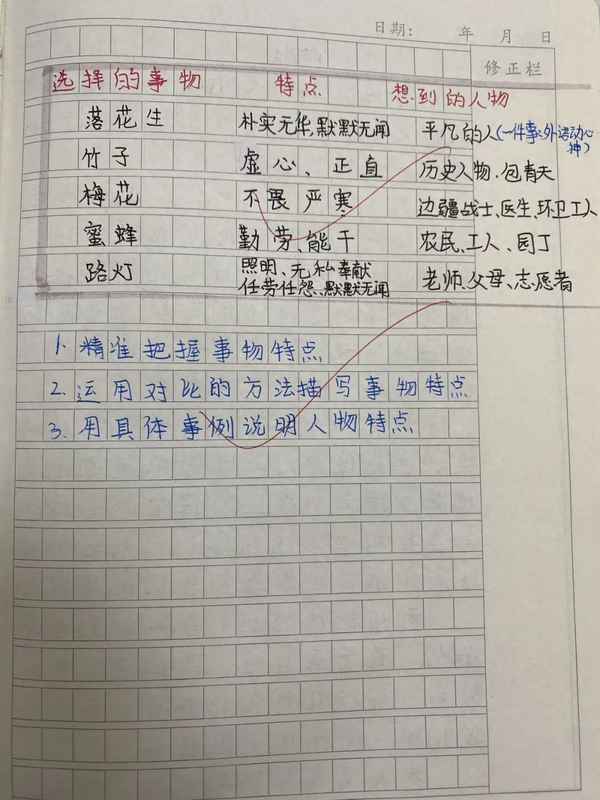 日期: 年 月 日
修正栏
选择的事物 特点 想到的人物
落花生 朴实无华,默默无闻 平凡的人(一件事:外活动心
竹子 虚心、正直 历史人物、包青天
梅花 不畏严寒 边疆战士、医生、环卫工人
蜜蜂 勤劳、能干 农民、工人、园丁
路灯 照明、无私奉献
任劳任怨、默默无闻 老师、父母、志愿者
1. 精准把握事物特点
2. 运用对比的方法描写事物特点
3. 用具体事例说明人物特点